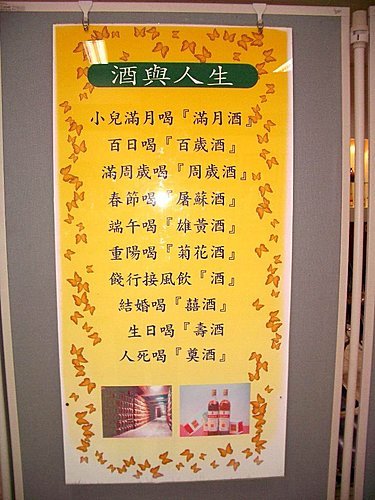 酒與人生
小兒滿月喝『滿月酒』
百日喝『百歲酒』
滿周歲喝『周歲酒』
春節喝『屠蘇酒』
端午喝『雄黃酒』
重陽喝『菊花酒』
餞行接風飲『酒』
結婚喝『囍酒』
生日喝『壽酒
人死喝『奠酒』